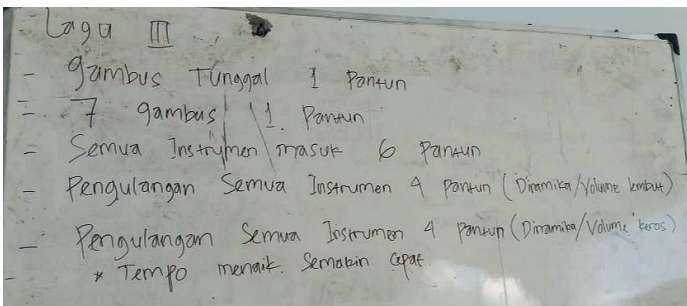 Lagu III
- Gambus Tunggal 1 Pantun
- 7 gambus 1 Pantun
- Semua Instrumen masuk 6 Pantun
- Pengulangan Semua Instrumen 4 pantun (Dinamika/Volume lembut)
- Pengulangan Semua Instrumen 4 pantun (Dinamika/Volume keras)
* Tempo menaik. Semakin Cepat